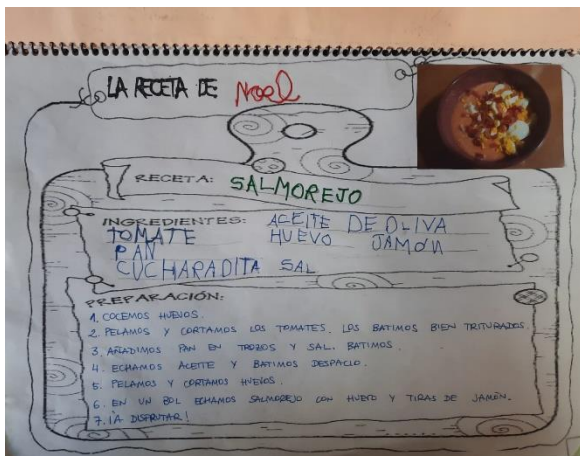 LA RECETA DE Noel
RECETA: SALMOREJO
INGREDIENTES: ACEITE DE OLIVA
TOMATE HUEVO JAMÓN
PAN
CUCHARADITA SAL
PREPARACIÓN:
1. COCEMOS HUEVOS.
2. PELAMOS Y CORTAMOS LOS TOMATES. LOS BATIMOS BIEN TRITURADOS.
3. AÑADIMOS PAN EN TROZOS Y SAL. BATIMOS.
4. ECHAMOS ACEITE Y BATIMOS DESPACIO.
5. PELAMOS Y CORTAMOS HUEVOS.
6. EN UN BOL ECHAMOS SALMOREJO CON HUEVO Y TIRAS DE JAMÓN.
7. ¡A DISFRUTAR!